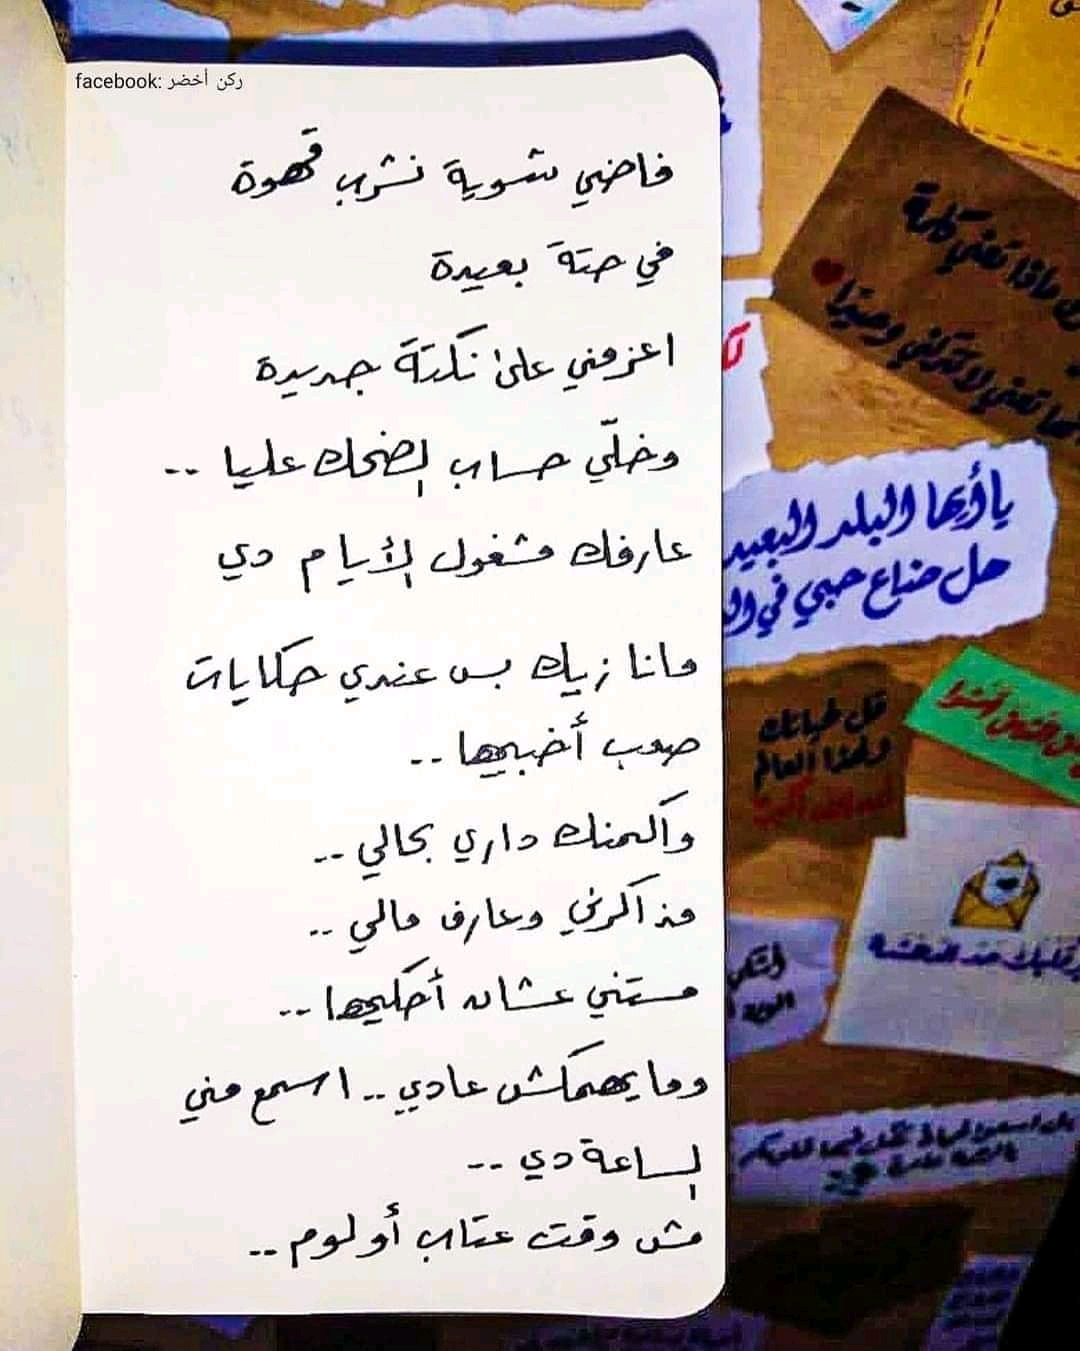 facebook: ركن أخضر
فاضي شوية نشرب قهوة
في حتة بعيدة
اعزمني على نكتة جديدة
وخلّي حساب الضحك عليا ..
عارفك مشغول الأيام دي
مانا زيك بس عندي حكايات
صعب أخبيها ..
وأكمنك داري بحالي ..
مذاكرني وعارف مالي ..
مستني عشان أحكيها ..
وما يهمكش عادي .. اسمع مني
الساعة دي ..
مش وقت عتاب أو لوم ..
ماذا تعني كلمة
لا تتركني وحيدًا
يا أيها البلد البعيد
هل ضاع حبي في
قل لحياتك
ولهذا العالم